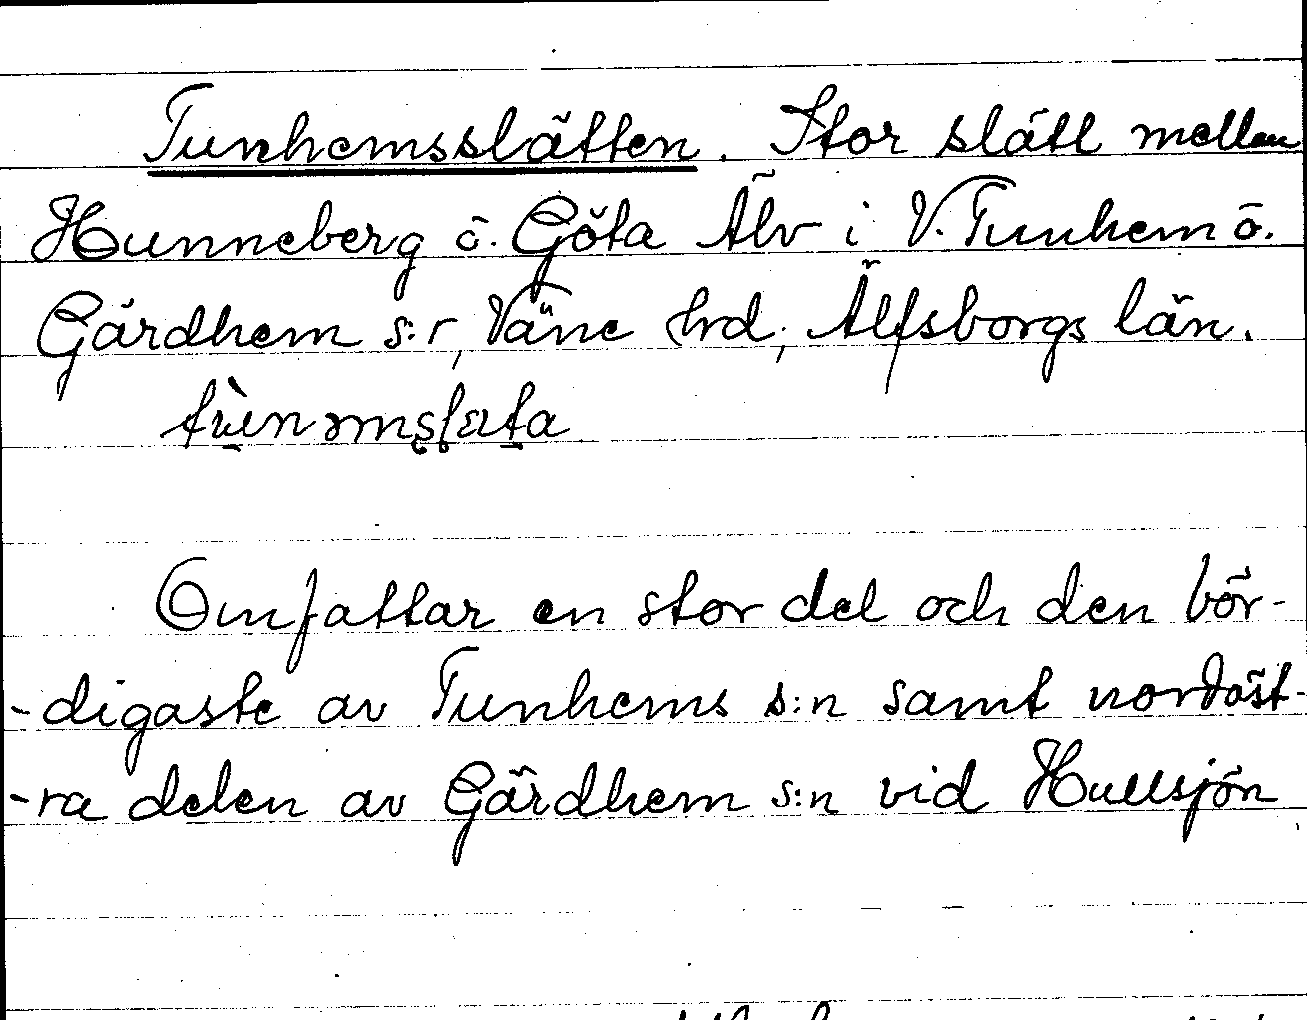 Tunhemsslätten. Stor slätt mellan
Hunneberg o. Göta Älv i V. Tunhem o.
Gärdhem s:r, Väne hrd; Älfsborgs län.
Omfattar en stor del och den bör-
-digaste av Tunhems s:n samt nordöst-
-ra delen av Gärdhem s:n vid Hullsjön